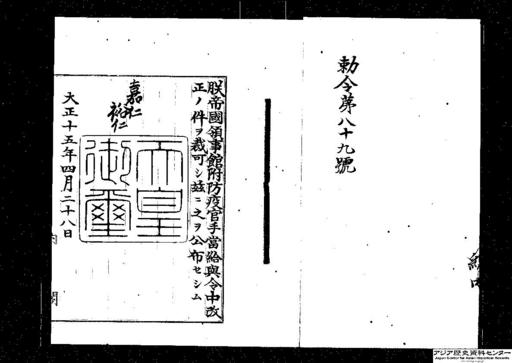 勅令第八十九號
朕帝國領事館附防疫官手當給與令中改
正ノ件ヲ裁可シ茲ニ之ヲ公布セシム
嘉仁
裕仁
天皇
御璽
大正十五年四月二十八日
内閣
アジア歴史資料センター
Japan Center for Asian Historical Records